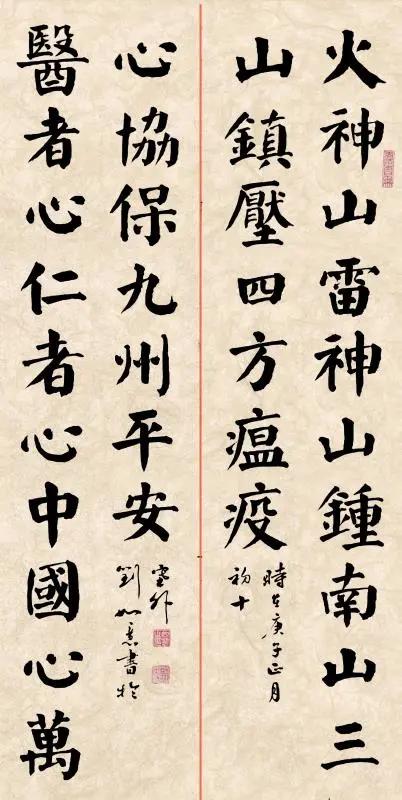 火神山雷神山鍾南山三
山鎮壓四方瘟疫
時在庚子正月
初十
醫者心仁者心中國心萬
心協保九州平安
劉如意書於